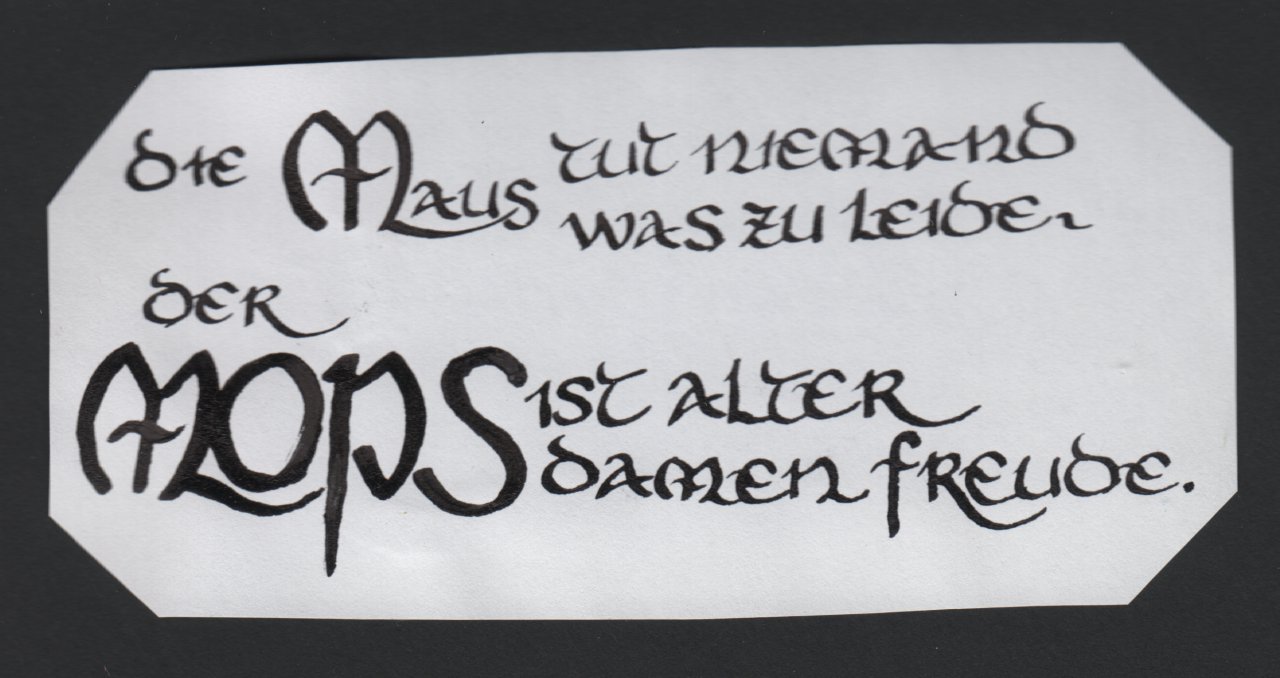 die Maus tut niemand
was zu leide.
der
Mops ist alter
damen freude.